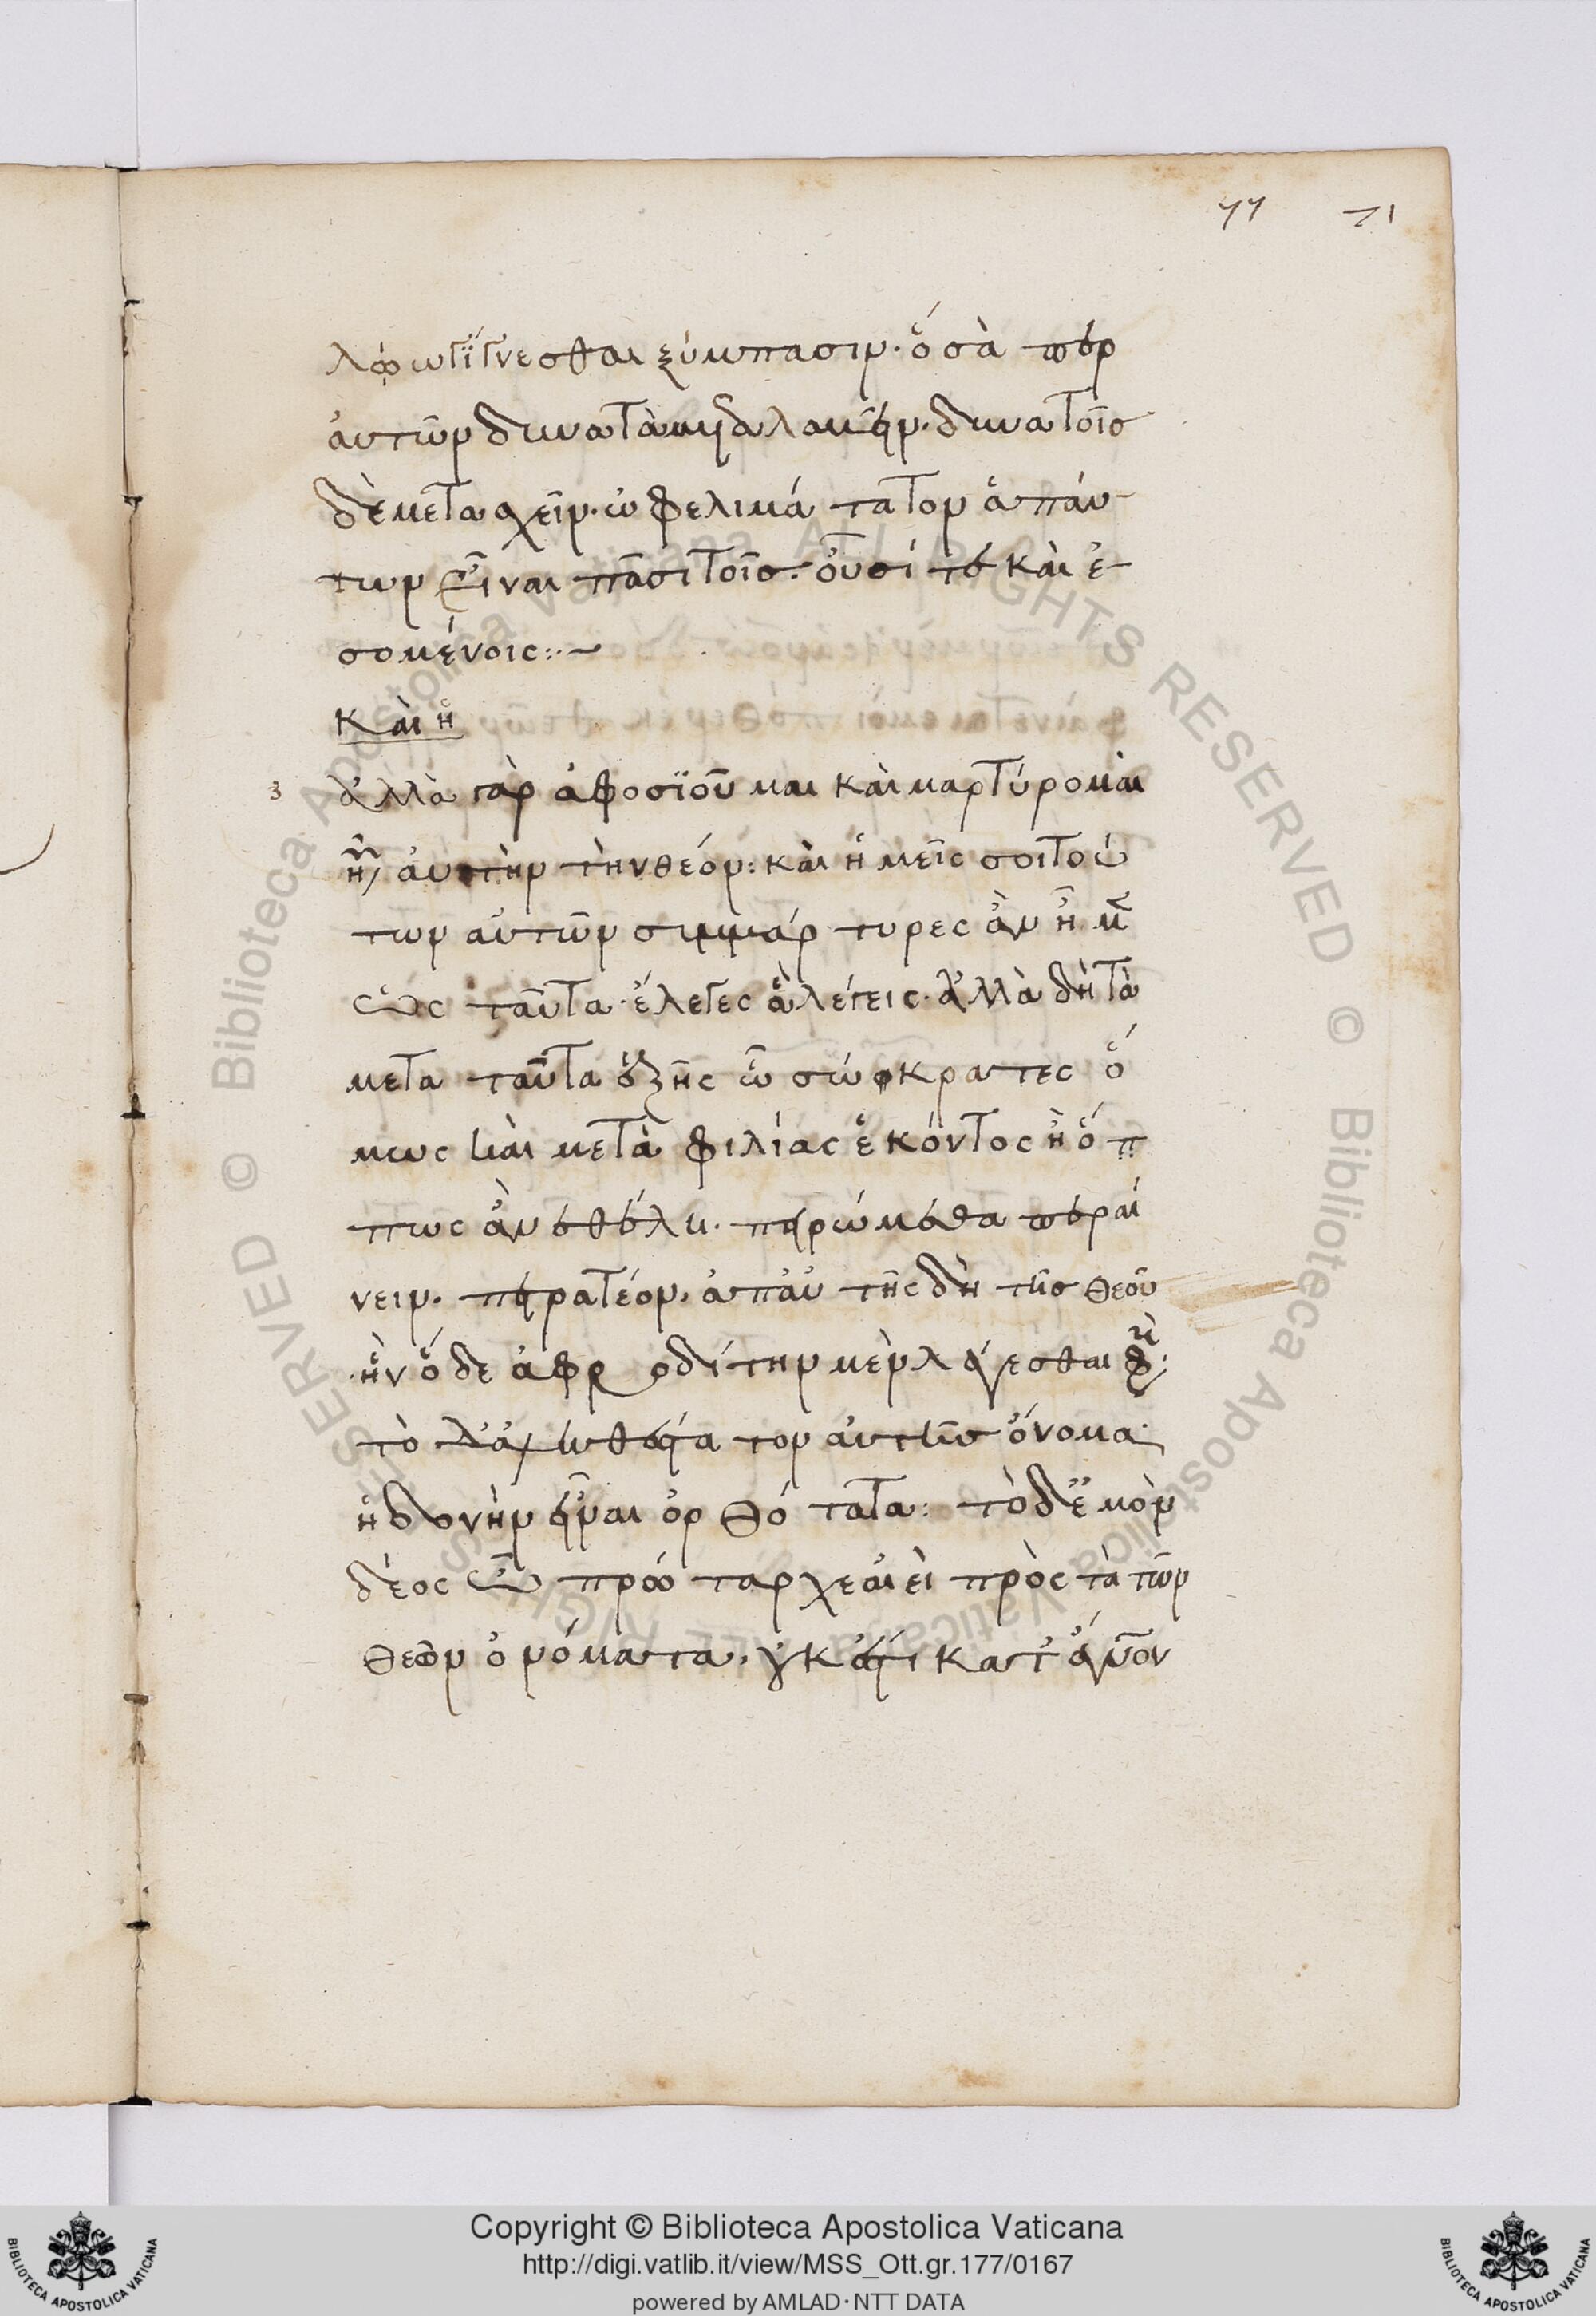 77 71
λφω γίγνεσθαι ξύμπασιν. ὅσα περ
αυτῶν δυνατὰ μεταλαβεῖν. δυνατοῖσ
δὲ μετασχεῖν. ὠφελιμώτατον ἁπάν
των εἶναι πᾶσι τοῖσ. οὖσί τε καὶ ἐ
σομένοις:~
Καὶ ἡ
3 ἀλλὰ γὰρ ἀφοσϊοῦμαι καὶ μαρτύρομαι
αυτὴν τὴν θεόν: καὶ ἡμεῖς σοι τού
των αὐτῶν συμμάρτυρες ἂν εἶμεν
ὡς ταῦτα ἔλεγες ἃ λέγεις. ἀλλὰ δὴ τὰ
μετα ταῦτα ἑξῆς ὦ σώκρατες ὅ
μως καὶ μετὰ φιλίας ἑκόντος ἢ ὅπ
πως ἂν ἐθέλη. πειρώμεθα περαί
νειν. πειρατέον. ἀπ' αὐτῆς δὴ τῆσ θεοῦ
ἣν ὅδε ἀφροδίτην μὲν λέγεσθαι φησι
τὸ δ' ἀληθέστατον αὐτῆσ ὄνομα
ἡδονὴν εἶναι ὀρθότατα: τὸ δ' ἐμὸν
δέος ὦ πρώταρχε ἀεὶ πρὸς τὰ τῶν
θεῶν ὀνόματα. οὐκ ἔστι κατ' ἄνθρωπον
Copyright © Biblioteca Apostolica Vaticana
http://digi.vatlib.it/view/MSS_Ott.gr.177/0167
powered by AMLAD·NTT DATA